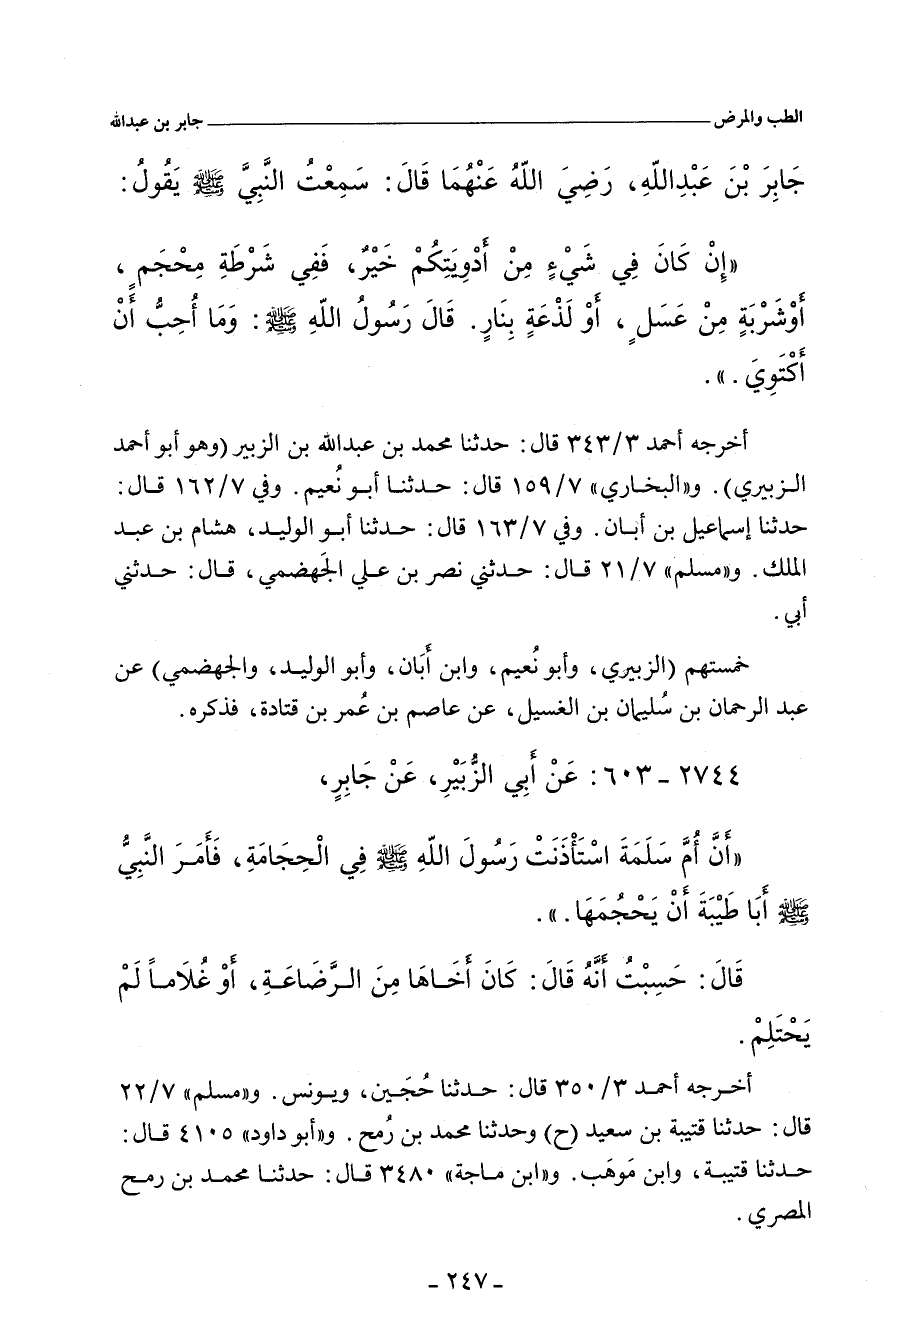 الطب والمرض ــــــــــــــــــــــــــــــــ جابر بن عبدالله
جَابِرَ بْنَ عَبْدِاللّهِ، رَضِيَ اللّهُ عَنْهُمَا قَالَ: سَمِعْتُ النَّبِيَّ ﷺ يَقُولُ:
«إِنْ كَانَ فِي شَيْءٍ مِنْ أَدْوِيَتِكُمْ خَيْرٌ، فَفِي شَرْطَةِ مِحْجَمٍ،
أَوْشَرْبَةٍ مِنْ عَسَلٍ، أَوْ لَذْعَةٍ بِنَارٍ. قَالَ رَسُولُ اللّهِ ﷺ: وَمَا أُحِبُّ أَنْ
أَكْتَوِيَ.».
أخرجه أحمد ٣/٣٤٣ قال: حدثنا محمد بن عبدالله بن الزبير (وهو أبو أحمد
الزبيري). و«البخاري» ٧/١٥٩ قال: حدثنا أبو نُعيم. وفي ٧/١٦٢ قال:
حدثنا إسماعيل بن أبان. وفي ٧/١٦٣ قال: حدثنا أبو الوليد، هشام بن عبد
الملك. و«مسلم» ٧/٢١ قال: حدثني نصر بن علي الجَهضمي، قال: حدثني
أبي.
خمستهم (الزبيري، وأبو نُعيم، وابن أَبَان، وأبو الوليد، والجهضمي) عن
عبد الرحمان بن سُليمان بن الغسيل، عن عاصم بن عُمر بن قتادة، فذكره.
٢٧٤٤ ـ ٦٠٣: عَنْ أَبِي الزُّبَيْرِ، عَنْ جَابِرٍ،
«أَنَّ أُمَّ سَلَمَةَ اسْتَأْذَنَتْ رَسُولَ اللّهِ ﷺ فِي الْحِجَامَةِ، فَأَمَرَ النَّبِيُّ
ﷺ أَبَا طَيْبَةَ أَنْ يَحْجُمَهَا.».
قَالَ: حَسِبْتُ أَنَّهُ قَالَ: كَانَ أَخَاهَا مِنَ الرَّضَاعَةِ، أَوْ غُلَاماً لَمْ
يَحْتَلِمْ.
أخرجه أحمد ٣/٣٥٠ قال: حدثنا حُجَين، ويونس. و«مسلم» ٧/٢٢
قال: حدثنا قتيبة بن سعيد (ح) وحدثنا محمد بن رُمح. و«أبو داود» ٤١٠٥ قال:
حدثنا قتيبة، وابن مَوهَب. و«ابن ماجة» ٣٤٨٠ قال: حدثنا محمد بن رمح
المصري.
ـ ٢٤٧ ـ